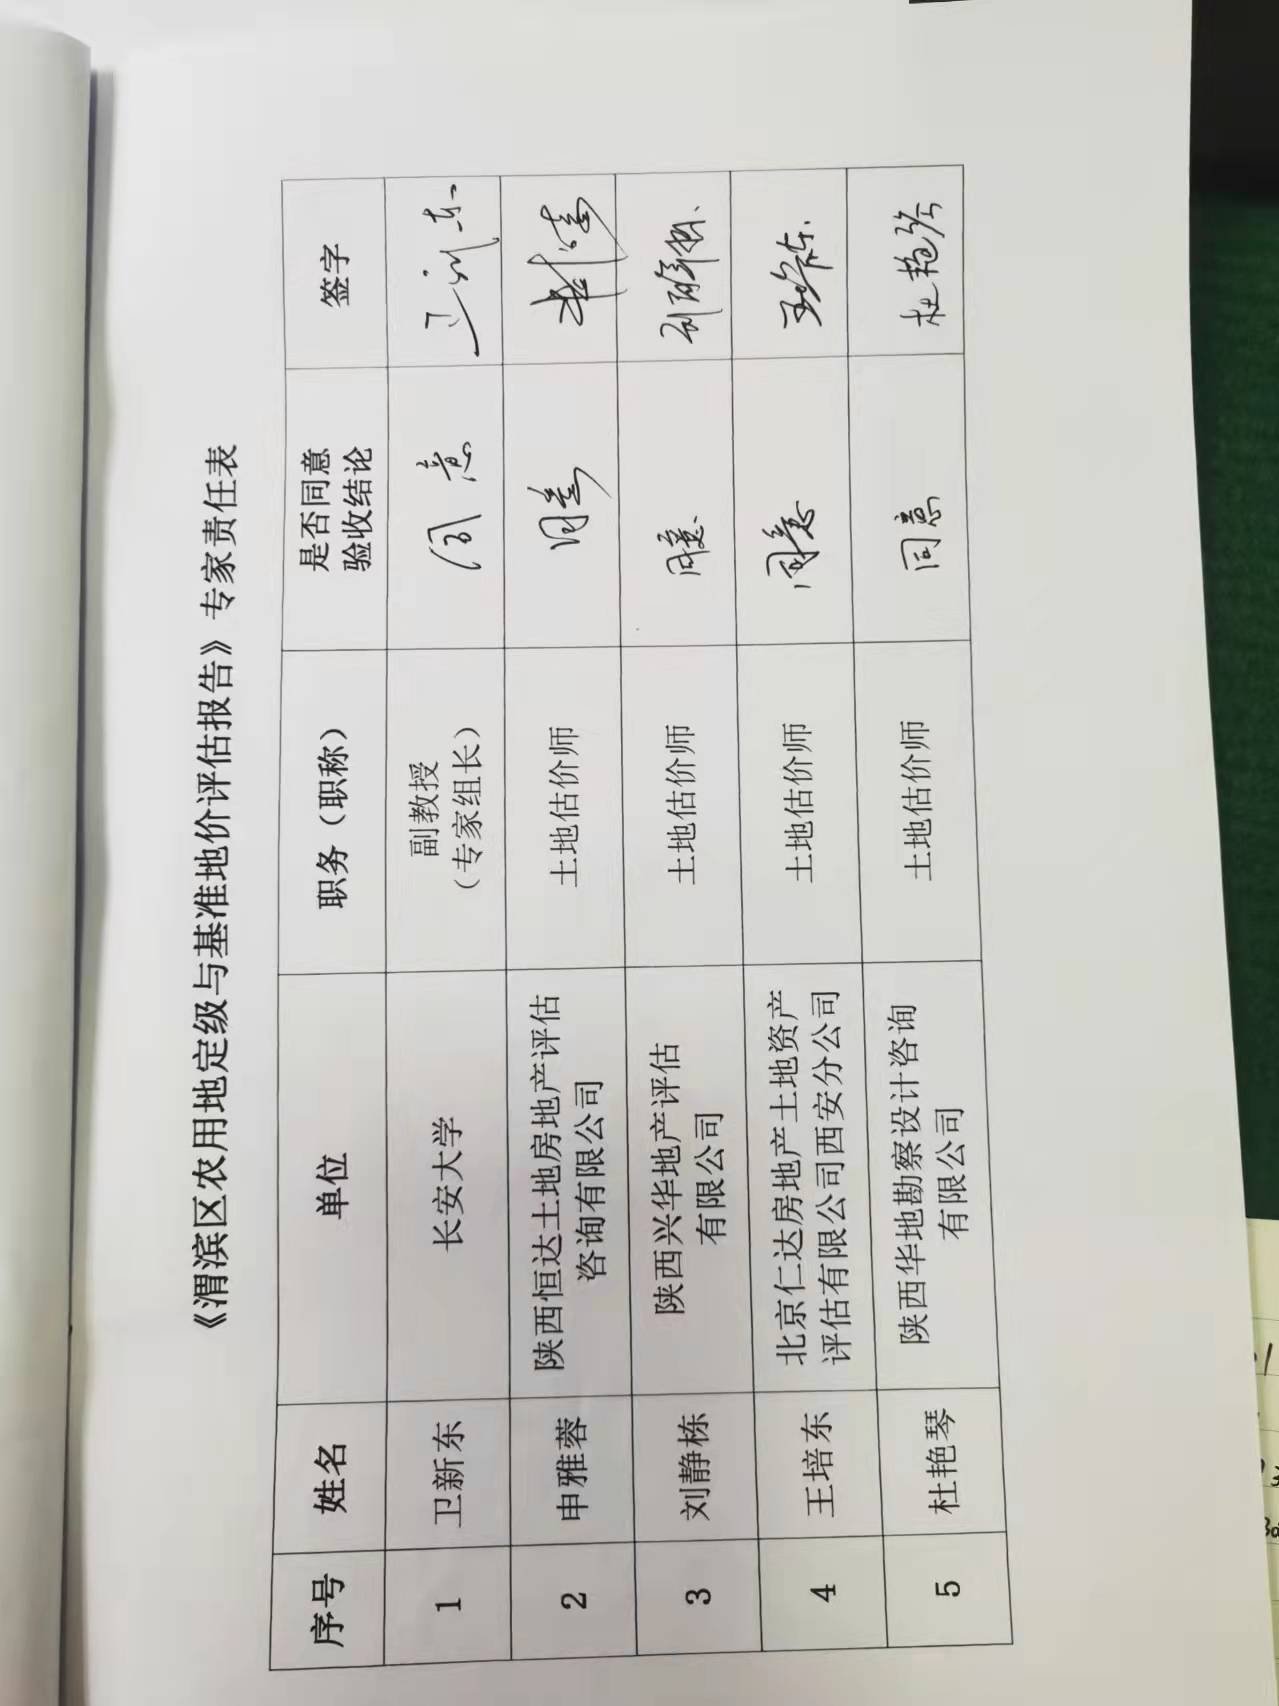 《渭滨区农用地定级与基准地价评估报告》专家责任表
序号 姓名 单位 职务（职称） 是否同意 签字
验收结论
1 卫新东 长安大学 副教授 同意 卫新东
（专家组长）
2 申雅蓉 陕西恒达土地房地产评估 土地估价师 同意
咨询有限公司
3 刘静栋 陕西兴华地产评估 土地估价师 同意 刘静栋
有限公司
4 王培东 北京仁达房地产土地资产 土地估价师 同意 王培东
评估有限公司西安分公司
5 杜艳琴 陕西华地勘察设计咨询 土地估价师 同意 杜艳琴
有限公司